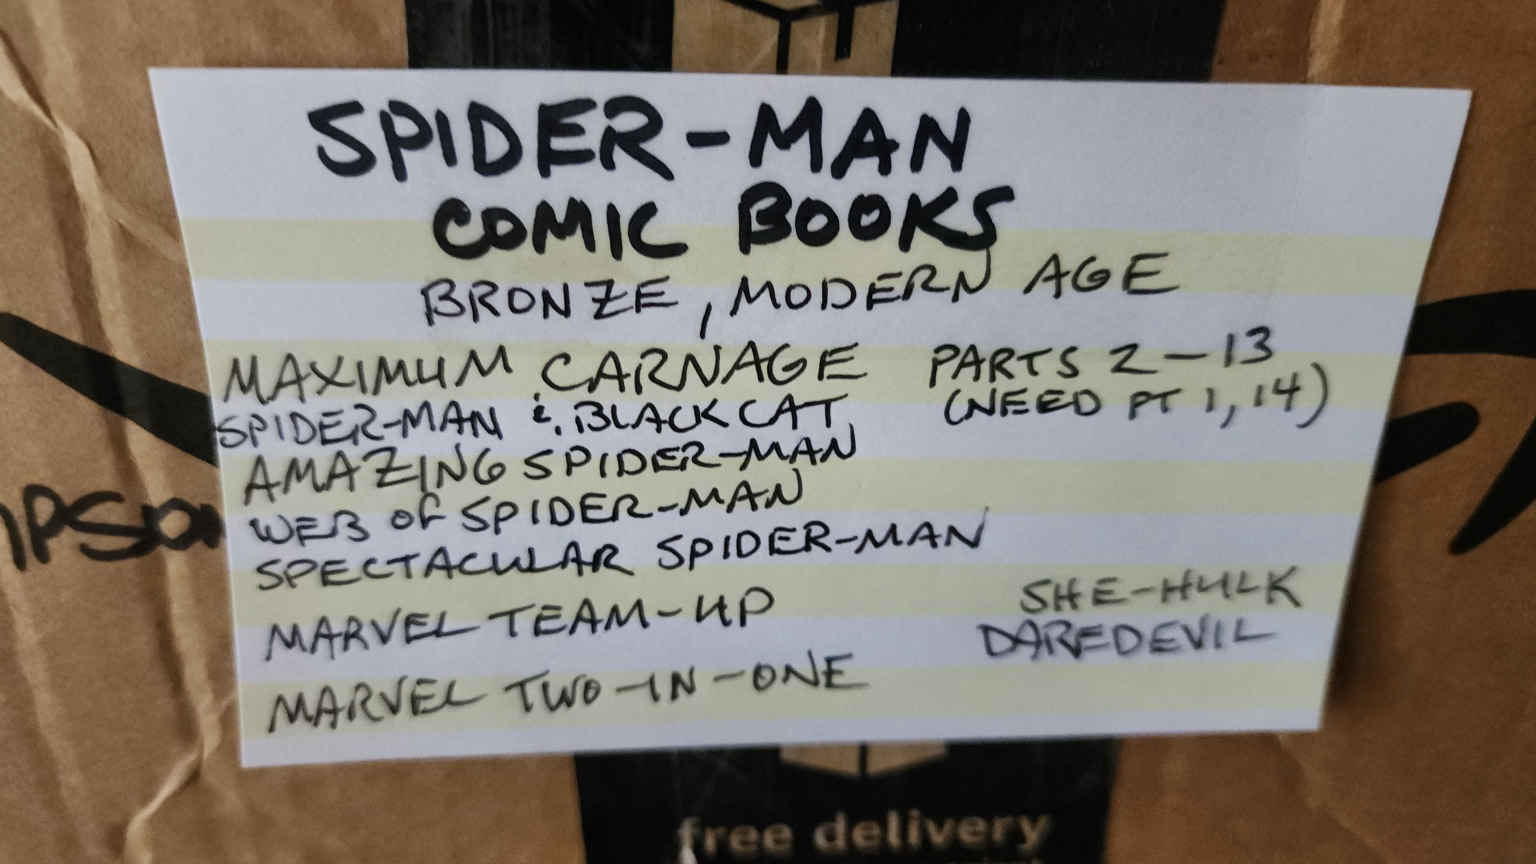 SPIDER-MAN
COMIC BOOKS
BRONZE, MODERN AGE
MAXIMUM CARNAGE PARTS 2-13
(NEED PT 1, 14)
SPIDER-MAN & BLACK CAT
AMAZING SPIDER-MAN
WEB OF SPIDER-MAN
SPECTACULAR SPIDER-MAN
MARVEL TEAM-UP
MARVEL TWO-IN-ONE
SHE-HULK
DAREDEVIL
free delivery